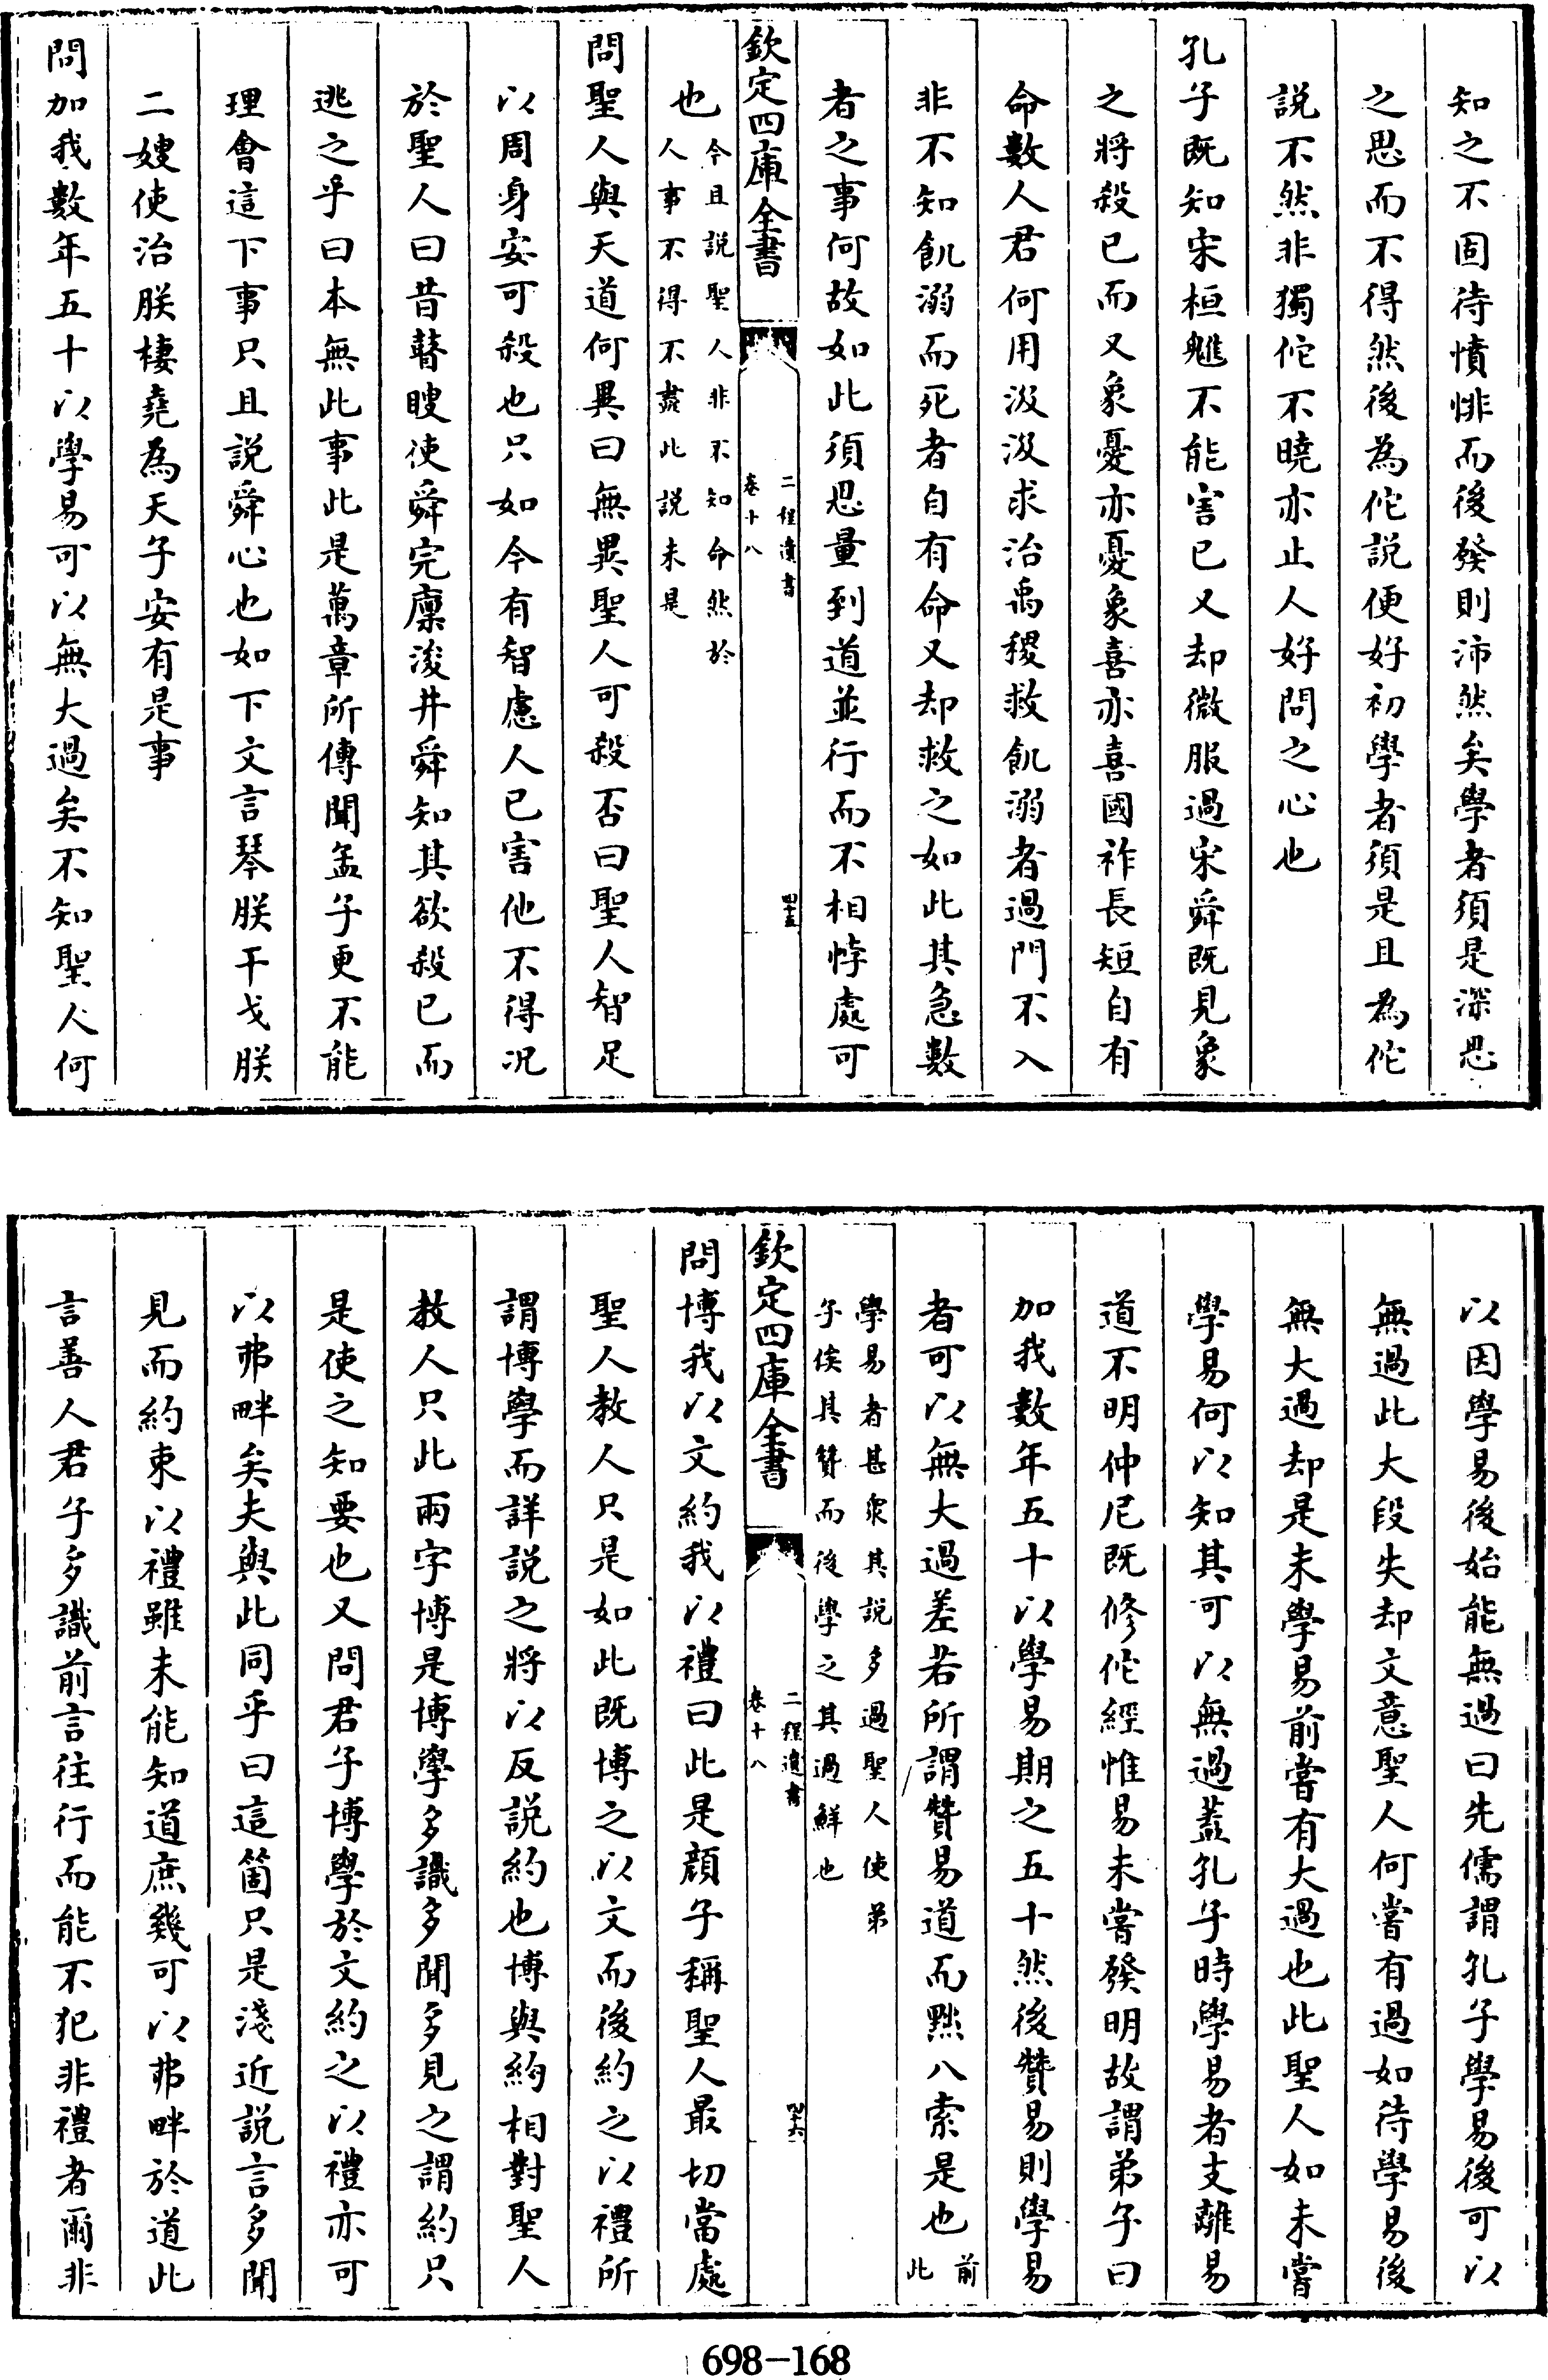 知之不固待憤悱而後發則沛然矣學者須是深思
之思而不得然後為佗說便好初學者須是且為佗
說不然非獨佗不曉亦止人好問之心也
孔子既知宋桓魋不能害已又却微服過宋舜既見象
之將殺已而又象憂亦憂象喜亦喜國祚長短自有
命數人君何用汲汲求治禹稷救飢溺者過門不入
非不知飢溺而死者自有命又却救之如此其急數
者之事何故如此須思量到道並行而不相悖處可
欽定四庫全書
二程遺書
卷十八
四十五
也今且說聖人非不知命然於
人事不得不盡此說未是
問聖人與天道何異曰無異聖人可殺否曰聖人智足
以周身安可殺也只如今有智慮人已害他不得况
於聖人曰昔瞽瞍使舜完廩浚井舜知其欲殺已而
逃之乎曰本無此事此是萬章所傳聞孟子更不能
理會這下事只且說舜心也如下文言琴朕干戈朕
二嫂使治朕棲堯為天子安有是事
問加我數年五十以學易可以無大過矣不知聖人何
以因學易後始能無過曰先儒謂孔子學易後可以
無過此大段失却文意聖人何嘗有過如待學易後
無大過却是未學易前嘗有大過也此聖人如未嘗
學易何以知其可以無過蓋孔子時學易者支離易
道不明仲尼既修佗經惟易未嘗發明故謂弟子曰
加我數年五十以學易期之五十然後贊易則學易
者可以無大過差若所謂贊易道而黜八索是也前
此
學易者甚衆其說多過聖人使弟
子俟其贊而後學之其過鮮也
欽定四庫全書
二程遺書
卷十八
四十六
問博我以文約我以禮曰此是顔子稱聖人最切當處
聖人教人只是如此既博之以文而後約之以禮所
謂博學而詳說之將以反說約也博與約相對聖人
教人只此兩字博是博學多識多聞多見之謂約只
是使之知要也又問君子博學於文約之以禮亦可
以弗畔矣夫與此同乎曰這箇只是淺近說言多聞
見而約束以禮雖未能知道庶幾可以弗畔於道此
言善人君子多識前言往行而能不犯非禮者爾非
698-168